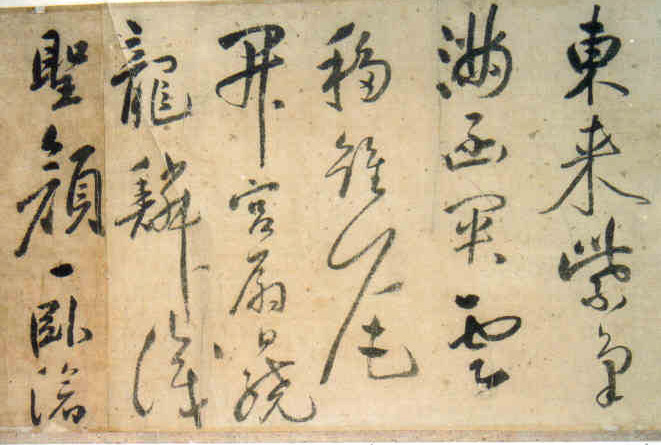 東来紫氣
滿函関雲
移雉尾
開宮扇日繞
龍鱗識
聖顔一臥滄